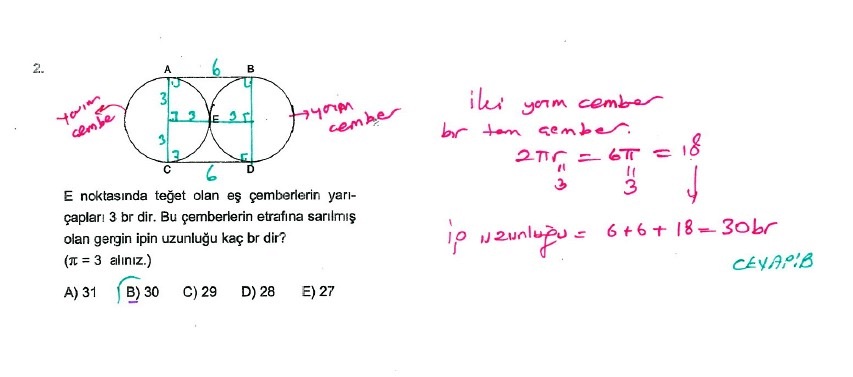 2.
A 6 B
3
3 E 3 r
3
C 6 D
yarım
çember
yarım
çember
E noktasında teğet olan eş çemberlerin yarı-
çapları 3 br dir. Bu çemberlerin etrafına sarılmış
olan gergin ipin uzunluğu kaç br dir?
(π = 3 alınız.)
A) 31 B) 30 C) 29 D) 28 E) 27
iki yarım çember
bir tam çember.
2πr = 6π = 18
= =
3 3
ip uzunluğu = 6+6+18=30br
CEVAP:B